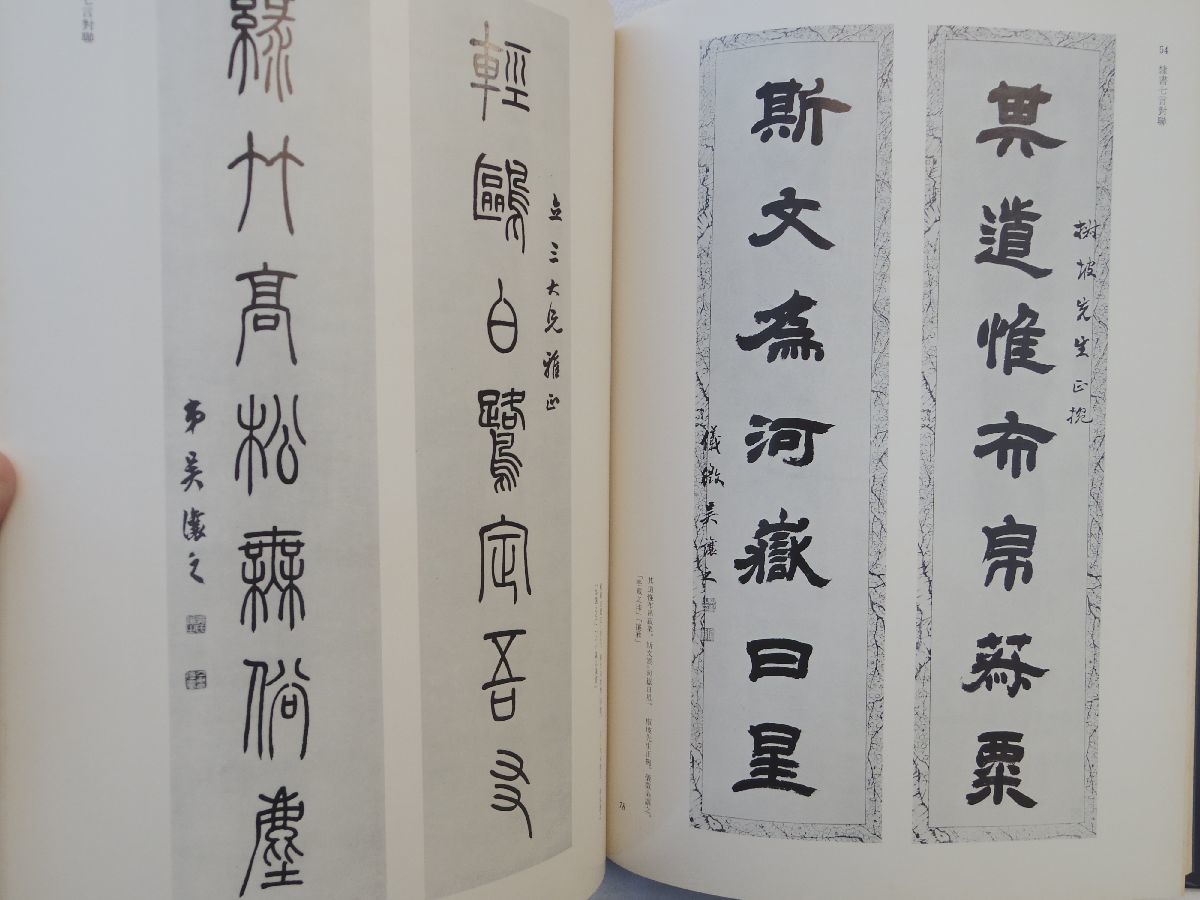 54 隸書七言對聯
樹坡先生正挽
其道惟布帛菽粟
斯文為河嶽日星
儀徵吳讓之
其道惟布帛菽粟。斯文為河嶽日星。樹坡先生正挽。儀徵吳讓之。
78
七言對聯
立三大兄雅正
輕鷗白鷺定吾友
綠竹高松無俗塵
弟吳讓之